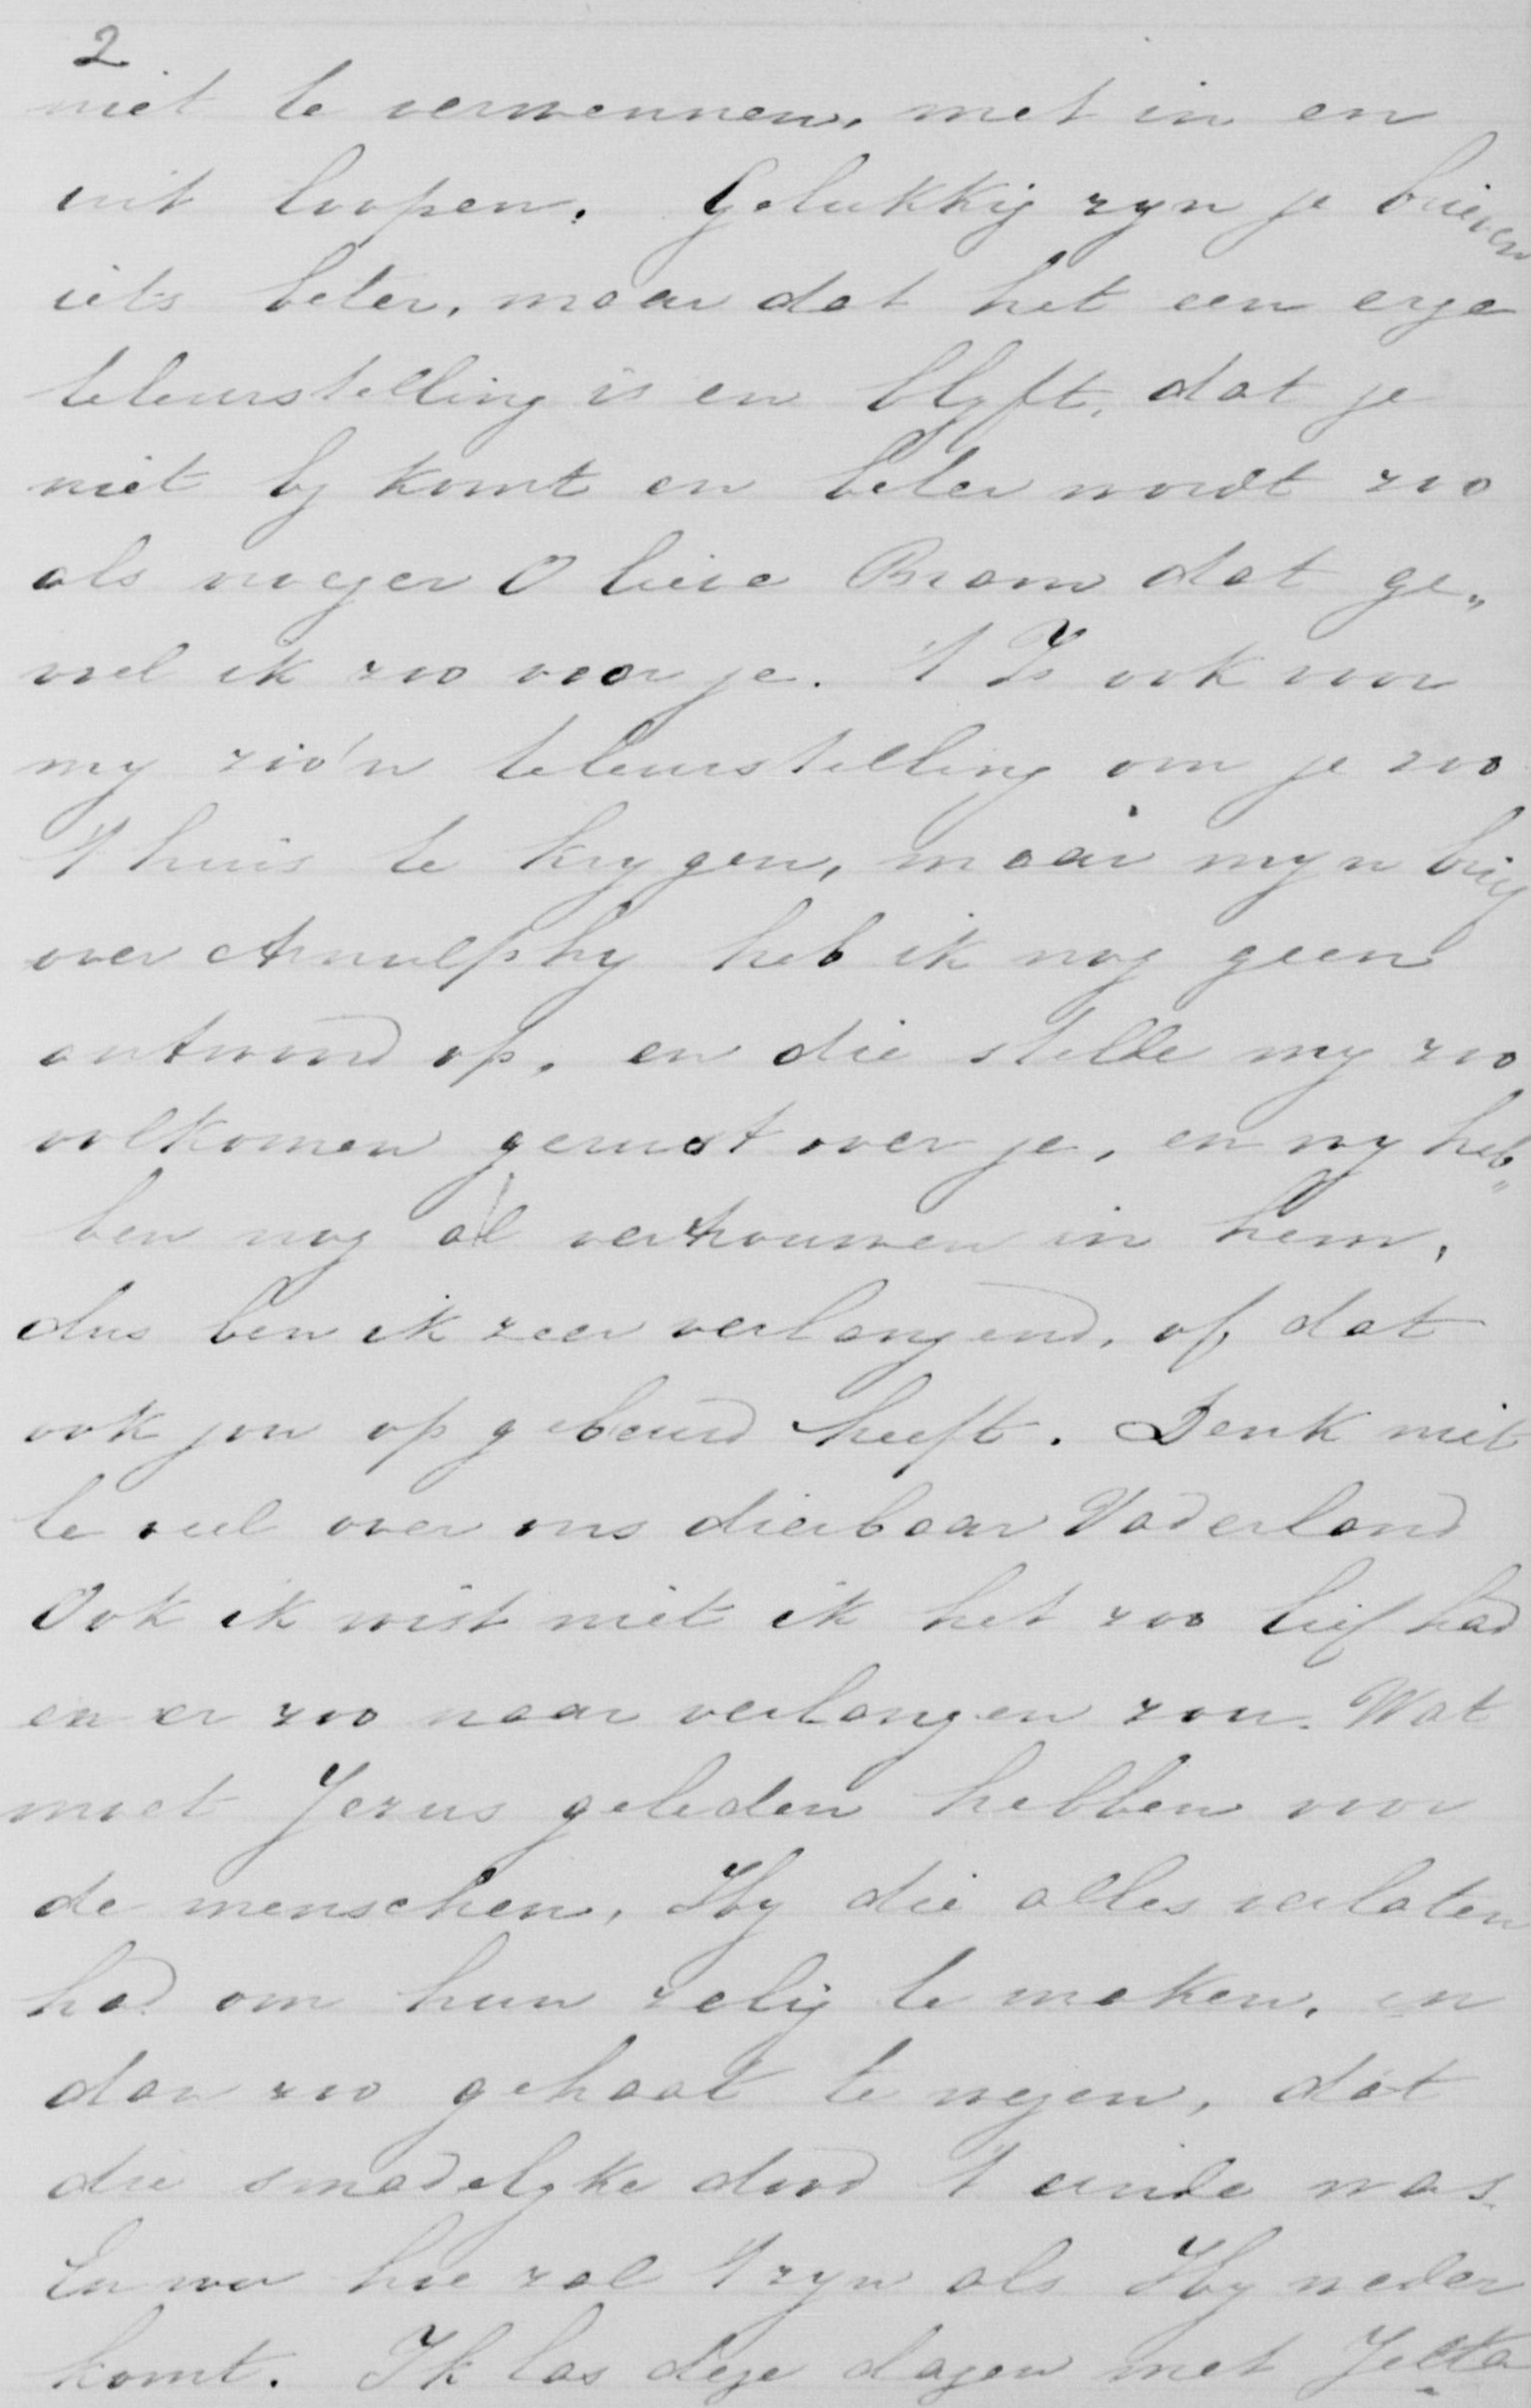 2
niet te verwennen, met in en
uit loopen. Gelukkig zyn je brieven
iets beter, maar dat het een erge
teleurstelling is en blyft, dat je
niet by komt en beter wordt zoo
als vroeger O lieve Bram dat ge„
voel ik zoo voor je. 't Is ook voor
my zoo'n teleurstelling om je zoo
t huis te krygen, maar myn brief
over Arnulphy heb ik nog geen
antwoord op, en die stelde my zoo
volkomen gerust over je, en wy heb„
ben nog al vertrouwen in hem,
dus ben ik zeer verlangend, of dat
ook jou op gebeurd heeft. Denk niet
te veel over ons dierbaar Vaderland
Ook ik wist niet ik het zoo lief had
en er zoo naar verlangen zou. Wat
moet Jezus geleden hebben voor
de menschen, Hy die alles verlaten
had om hun zalig te maken, en
dan zoo gehaat te wezen, dat
die smadelyke dood 't einde was.
En nu hoe zal 't zyn als Hy weder
komt. Ik las deze dagen met Jelta